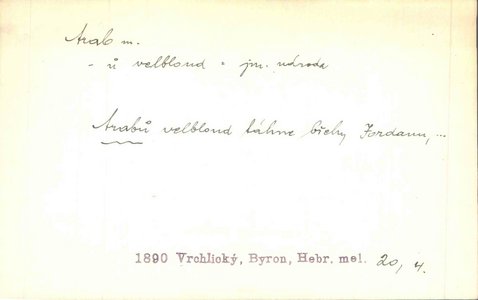 Arab m.
- ů velbloud = jm. národa
Arabů velbloud táhne břehy Jordanu, ...
1890 Vrchlický, Byron, Hebr. mel. 20, 4.